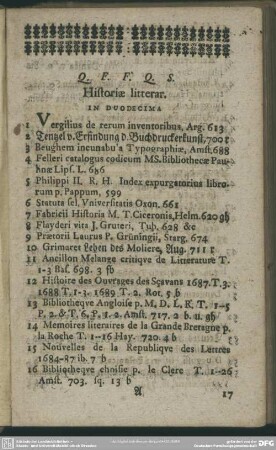 Q. F. F. Q. S.
Historiæ litterar.
IN DUODECIMA
1 Vergilius de rerum inventoribus, Arg. 613
2 Tentzel v. Erfindung d. Buchdruckerkunst, 700 r
3 Beughem incunabu'a Typographiæ, Amst. 688
4 Felleri catalogus codicum MS. Bibliothecæ Pau-
linæ Lips. L. 686
5 Philippi II. R. H. Index expurgatorius libro-
rum p. Pappum, 599
6 Statuta sel. Universitatis Oxon. 661
7 Fabricii Historia M. T. Ciceronis, Helm. 620 gh
8 Flayderi vita J. Gruteri, Tub. 628 &c
9 Prætorii Laurus P. Grüningii, Starg. 674
10 Grimaret Leben des Moliere, Aug. 711 r
11 Ancillon Melange critiqve de Litterature T.
1-3 Bas. 698. 3 fb
12 Histoire des Ouvrages des Sçavans 1687. T. 3.
1688 T. 1-3. 1689 T. 2. Rot. 5 b
13 Bibliotheqve Angloise p. M. D. L. R. T. 1-5
P. 2. & T. 6. P. 1. 2. Amst. 717. 2 b. u. gh
14 Memoires literaires de la Grande Bretagne p.
la Roche T. 1-16 Hay. 720. 4 b
15 Nouvelles de la Republiqve des Lettres
1684-87 ib. 7 b
16 Bibliotheqve choisie p. le Clerc T. 1-26
Amst. 703. sq. 13 b
A
17